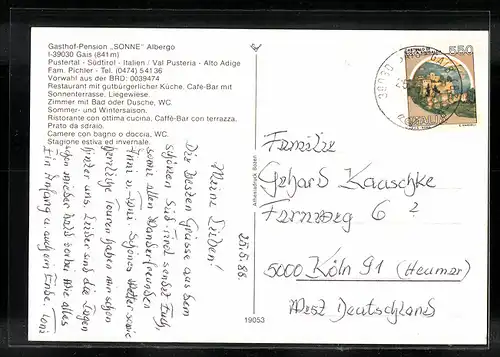 Gasthof-Pension „SONNE" Albergo
I-39030 Gais (841 m)
Pustertal - Südtirol - Italien / Val Pusteria - Alto Adige
Fam. Pichler - Tel. (0474) 54136
Vorwahl aus der BRD: 0039474
Restaurant mit gutbürgerlicher Küche. Café-Bar mit
Sonnenterrasse. Liegewiese.
Zimmer mit Bad oder Dusche, WC.
Sommer- und Wintersaison.
Ristorante con ottima cucina, Caffè-Bar con terrazza.
Prato da sdraio.
Camere con bagno o doccia, WC.
Stagione estiva ed invernale.
25.5.88
Meine Lieben!
Die besten Grüsse aus dem
schönen Süd-Tirol sendet Euch,
sowie allen Wanderfreunden
Anni u. Toni. Schönes Wetter sowie
herrliche Touren haben wir schon
hinter uns. Leider sind die Tagen
schon wieder bald vorbei. Wie alles
ein Anfang u. auch ein Ende. Toni
Athesiadruck Bozen
19053
550
Familie
Gehard Kauschke
Farnweg 6 2
5000 Köln 91 (Heumar)
West Deutschland